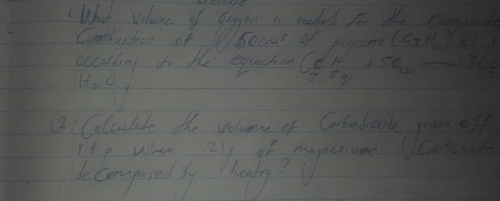 Exercise
1 What volume of Oxygen is needed for the Complete
Combustion of 50cm³ of propane (C3H8) at
according to the equation (C3H8(g) + 5O2(g) → 3CO2
H2O g
(2) Calculate the volume of Carbondioxide given off
r t p when 21g of magnesium Carbonate
decomposed by heating?